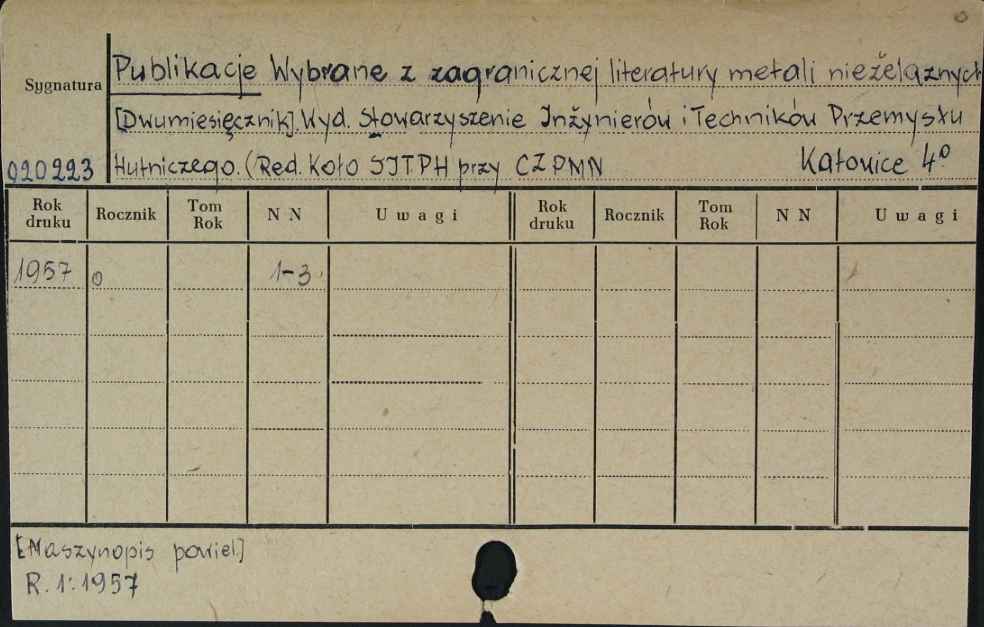 Sygnatura
Publikacje Wybrane z zagranicznej literatury metali nieżelaznych
[Dwumiesięcznik]. Wyd. Stowarzyszenie Inżynierów i Techników Przemysłu
920223 Hutniczego. (Red. Koło SITPH przy CZPMN Katowice 4º
Rok druku Rocznik Tom Rok N N Uwagi Rok druku Rocznik Tom Rok N N Uwagi
1957 0 1-3
[Maszynopis powiel]
R. 1: 1957